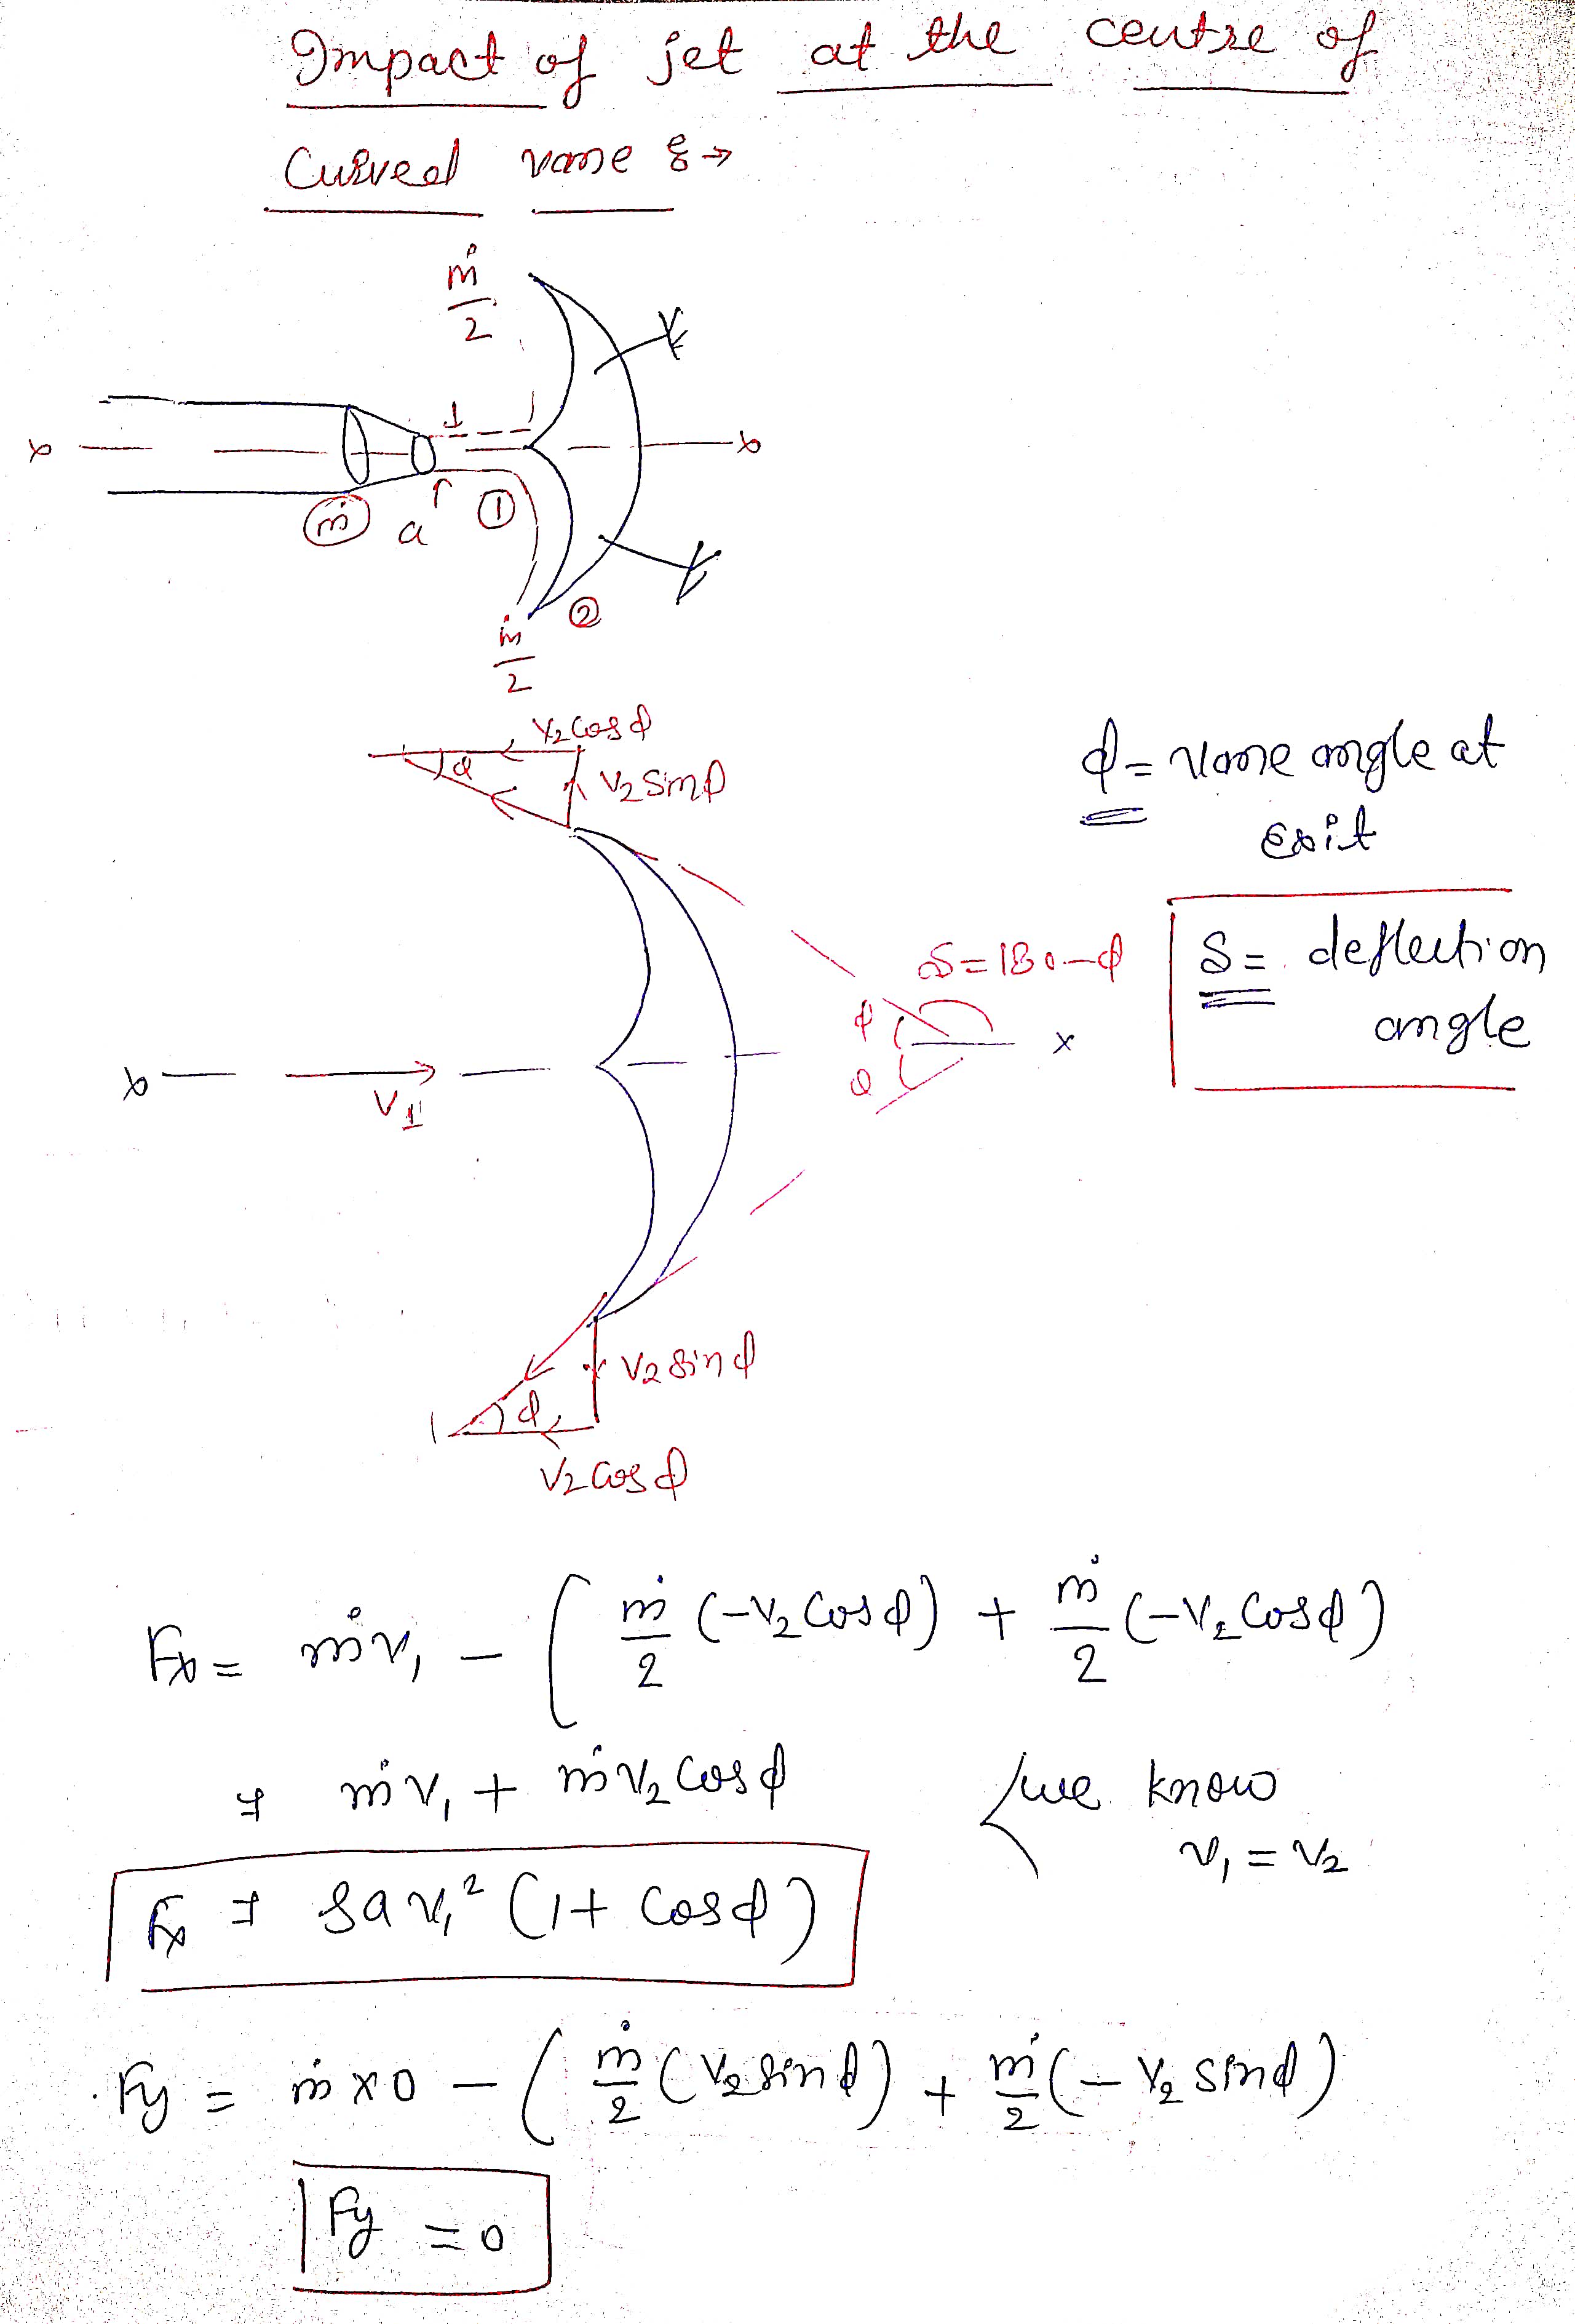 Impact of jet at the centre of
Curved vane :→
ṁ/2
x x
ṁ a ① 
②
ṁ/2
V₂ Cos ϕ
ϕ V₂ Sin ϕ
ϕ = vane angle at
exit
δ = 180 – ϕ
δ = deflection
angle
ϕ x
ϕ
x V₁
V₂ Sin ϕ
ϕ
V₂ Cos ϕ
Fx = ṁv₁ – ( ṁ/2 (–V₂ Cos ϕ) + ṁ/2 (–V₂ Cos ϕ)
⇒ ṁv₁ + ṁV₂ Cos ϕ we know
v₁ = V₂
Fx ⇒ ρav₁² (1 + Cos ϕ)
Fy = ṁ x 0 – ( ṁ/2 (V₂ sin ϕ) + ṁ/2 (– V₂ sin ϕ)
Fy = 0